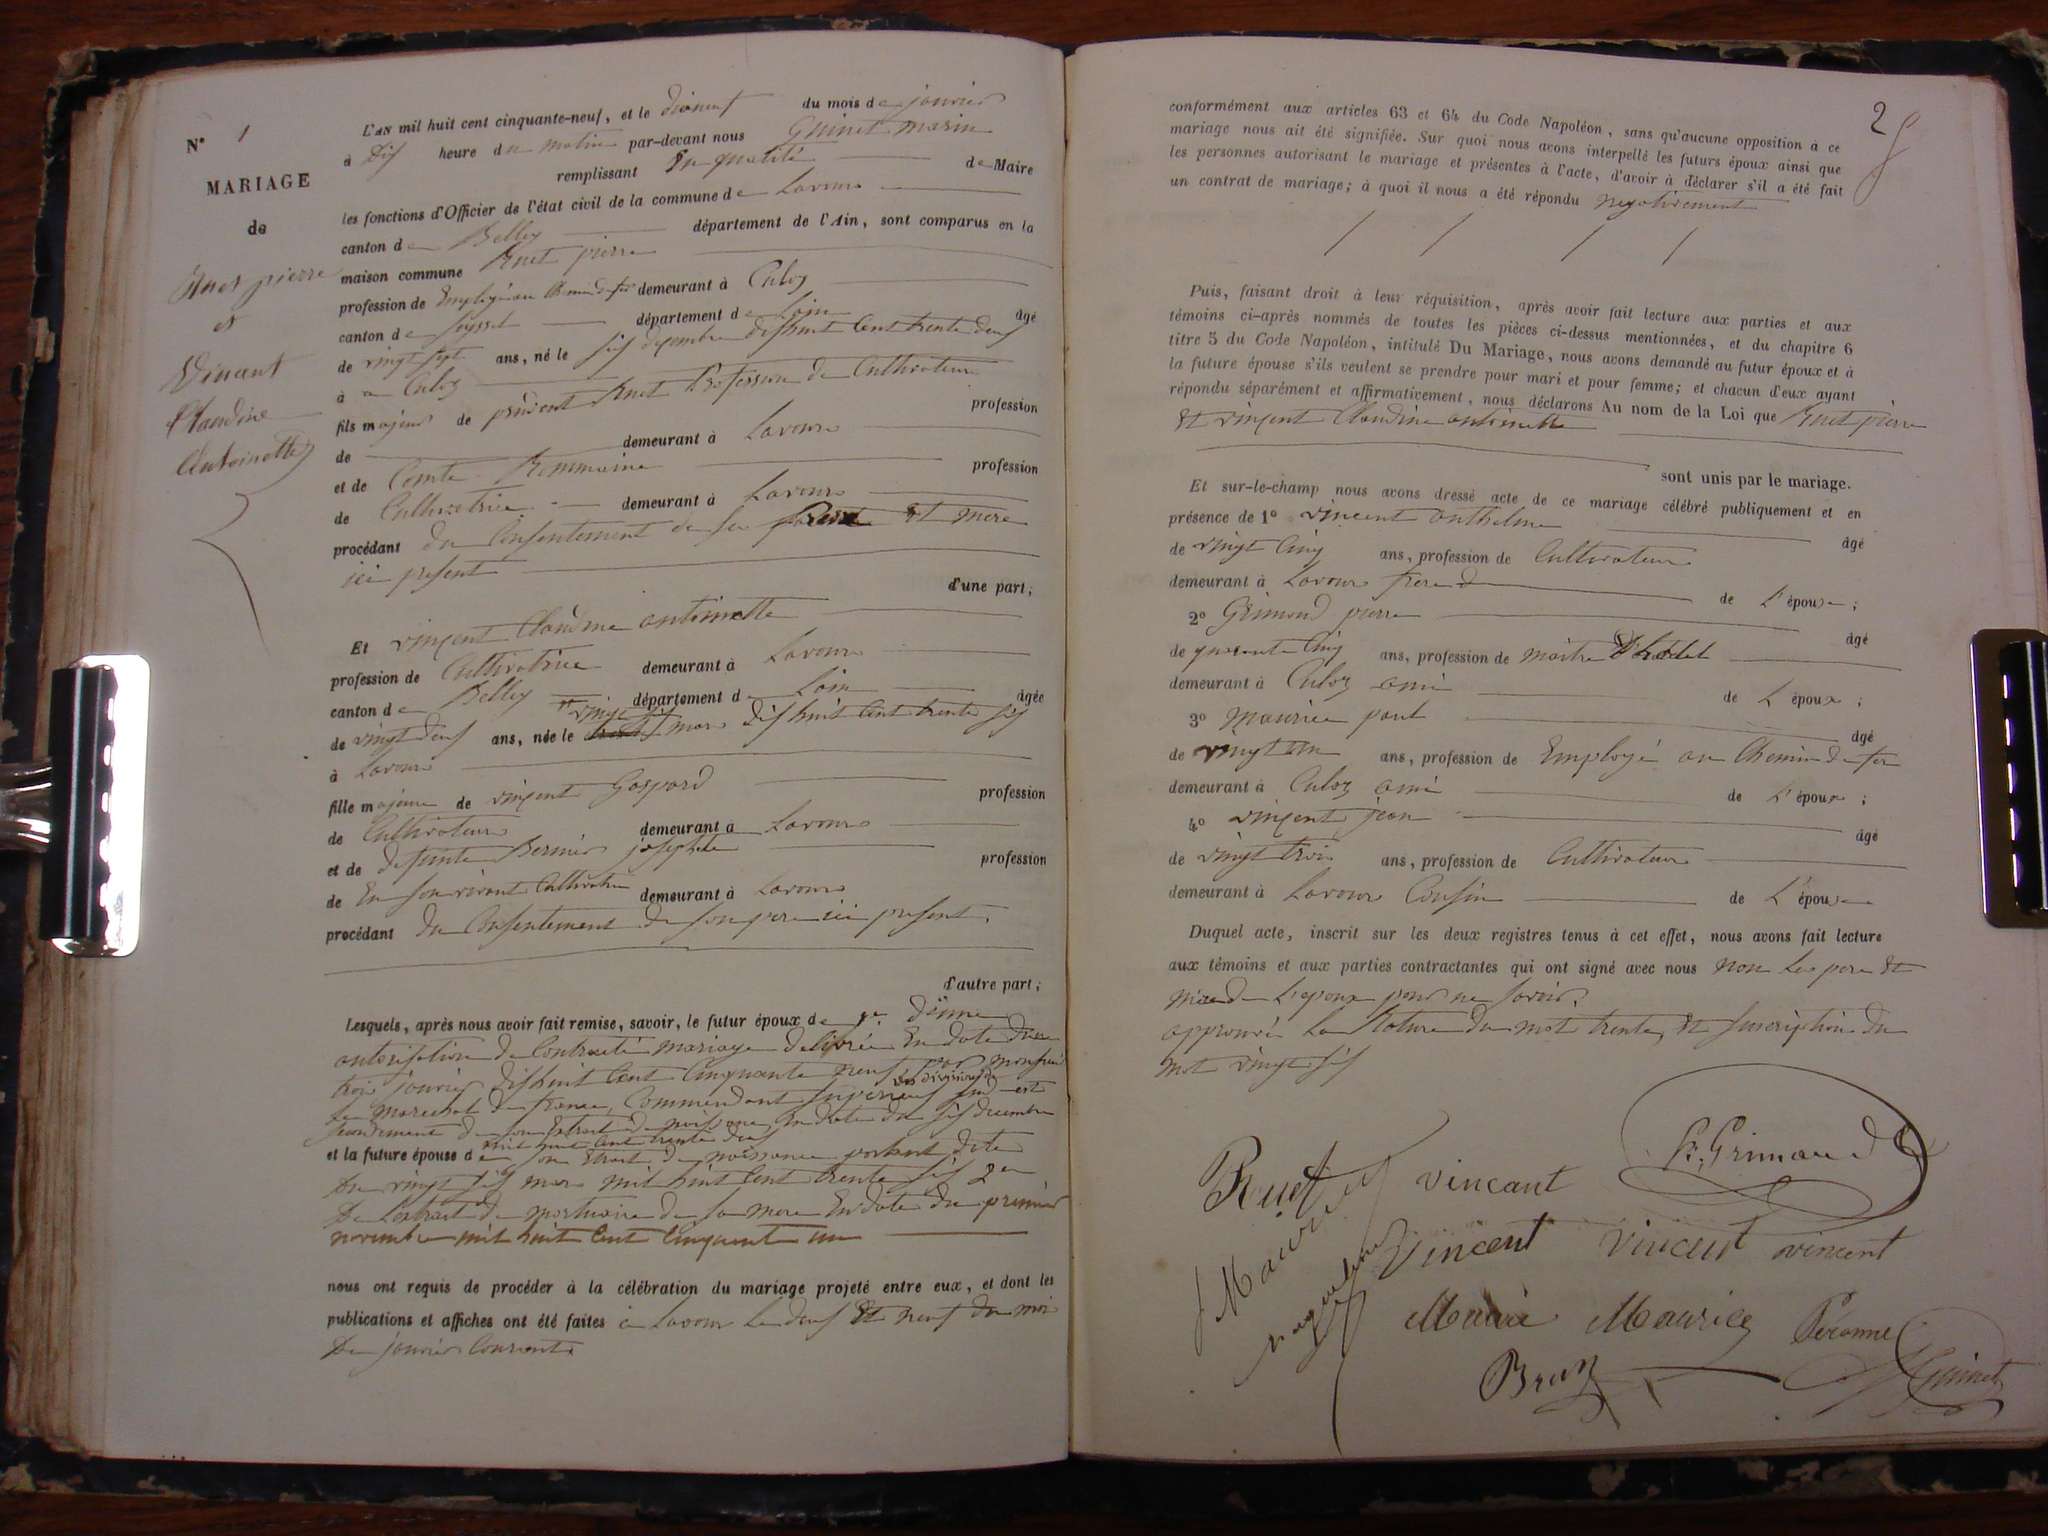 N° 1
MARIAGE
de
Ruet pierre
et
Vincant
Claudine
Antoinette
L'AN mil huit cent cinquante-neuf, et le dixneuf du mois de janvier
à dix heure du matin par-devant nous Guinet marin
remplissant En qualité de Maire
les fonctions d'Officier de l'état civil de la commune de Lavours
canton de Belley département de l'Ain, sont comparus en la
maison commune Ruet pierre
profession de Employé au Chemin de fer demeurant à Culoz
canton de Seyssel département de Lain âgé
de vingt sept ans, né le six decembre dixhuit Cent trente deux
à a Culoz
fils majeur de présent Ruet Profession de Cultivateur
profession
de demeurant à Lavours
et de Comte Rommaine profession
de Cultivatrice demeurant à Lavours
procédant du Consentement de ses pere et mere
ici present
d'une part;
Et vinçent Claudine antoinette
profession de Cultivatrice demeurant à Lavours
canton de Belley département de Lain âgée
de vingt deux ans, née le vingt six mars dix huit Cent trente six
à Lavours
fille majeure de vinçent Gaspard profession
de Cultivateur demeurant à Lavours
et de defunte Bernier josephte profession
de En son vivant Cultivatrice demeurant à Lavours
procédant du Consentement de son pere ici present
d'autre part;
Lesquels, après nous avoir fait remise, savoir, le futur époux de 1er d'une
autorisation de Contracté mariage delivrée En date du
trois janvier dixhuit Cent Cinquante neuf par Monsieur
le marechal de france, Commendant superieur des divisions du sud-est
secondement de son Extrait de naissance En date du six decembre
mil huit Cent trente deux
et la future épouse de son Extrait de naissance portant date
du vingt six mars mil huit Cent trente six 2en
de L'extrait de mortuaire de sa mere En date du premier
novembre mil huit Cent Cinquante un
nous ont requis de procéder à la célébration du mariage projeté entre eux, et dont les
publications et affiches ont été faites a Lavours Le deux et neuf du moi
de janvier Courant.
2
conformément aux articles 63 et 64 du Code Napoléon, sans qu'aucune opposition à ce
mariage nous ait été signifiée. Sur quoi nous avons interpellé les futurs époux ainsi que
les personnes autorisant le mariage et présentes à l'acte, d'avoir à déclarer s'il a été fait
un contrat de mariage; à quoi il nous a été répondu negativement
Puis, faisant droit à leur réquisition, après avoir fait lecture aux parties et aux
témoins ci-après nommés de toutes les pièces ci-dessus mentionnées, et du chapitre 6
titre 5 du Code Napoléon, intitulé Du Mariage, nous avons demandé au futur époux et à
la future épouse s'ils veulent se prendre pour mari et pour femme; et chacun d'eux ayant
répondu séparément et affirmativement, nous déclarons Au nom de la Loi que Ruet pierre
Et vinçent Claudine antoinette
sont unis par le mariage.
Et sur-le-champ nous avons dressé acte de ce mariage célébré publiquement et en
présence de 1° vincent anthelme âgé
de vingt Cinq ans, profession de Cultivateur
demeurant à Lavours frere de de L'épouse;
2° Grimond pierre âgé
de quarante Cinq ans, profession de maitre D'hotel
demeurant à Culoz ami de L'époux;
3° Maurice paul âgé
de vingt un ans, profession de Employé au Chemin de fer
demeurant à Culoz ami de L'époux;
4° vinçent jean âgé
de vingt trois ans, profession de Cultivateur
demeurant à Lavours Cousin de L'épouse
Duquel acte, inscrit sur les deux registres tenus à cet effet, nous avons fait lecture
aux témoins et aux parties contractantes qui ont signé avec nous non Les pere et
mere de L'epoux pour ne savoir.
approuvé La Rature du mot trente, et suscription du
mot vingt six
P. Grimaud
Ruet vincant
Vincent vincent vincent
Maurice Peronne
Guinet